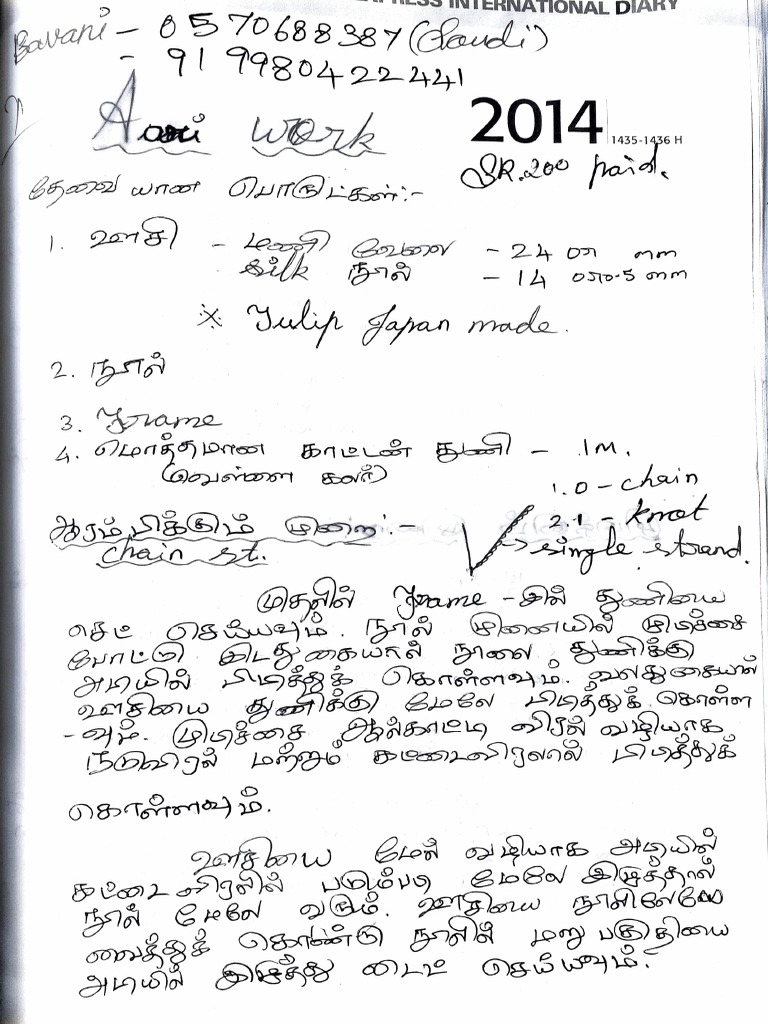 EXPRESS INTERNATIONAL DIARY
Bavani - 0570688387 (Saudi)
- 91 9980422441
Aari work
2014 1435-1436 H
SR.200 paid.
தேவையான பொருட்கள்:-
1. ஊசி - மணி வேலை - 24 mm
silk நூல் - 14 mm
※ Tulip Japan made.
2. நூல்
3. Frame
4. மொத்தமான காட்டன் துணி - 1M.
(வெள்ளை கலர்)
1.0 - chain
ஆரம்பிக்கும் முறை:- 2.1 - knot
chain st. → single strand.
முதலில் Frame-ல் துணியை
செட் செய்யவும். நூல் முனையில் முடிச்சை
போட்டு இடதுகையால் நூலை துணிக்கு
அடியில் பிடித்துக் கொள்ளவும். வலதுகையால்
ஊசியை துணிக்கு மேலே பிடித்துக் கொள்ள
-வும். முடிச்சை ஆல்காட்டி விரல் வழியாக
நடுவிரல் மற்றும் கட்டைவிரலால் பிடித்துக்
கொள்ளவும்.
ஊசியை மேல் வழியாக அடியில்
கட்டை விரலில் படும்படி மேலே இழுத்தால்
நூல் மேலே வரும். ஊசியை நூலிலேயே
வைத்துக் கொண்டு நூலில் மறு பகுதியை
அடியில் இழுத்து டைட் செய்யவும்.